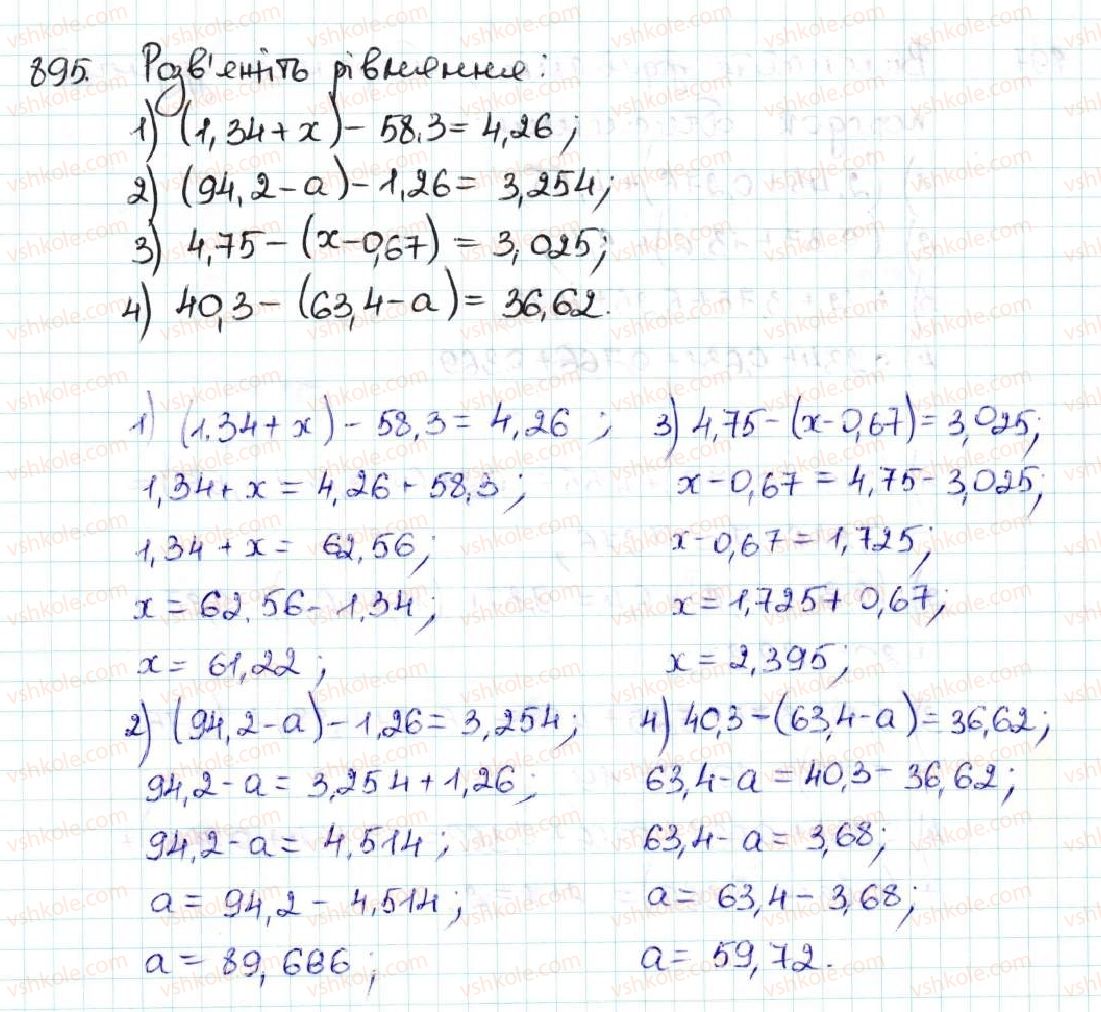 895. Розв'яжіть рівняння:
1) (1,34+x)-58,3=4,26;
2) (94,2-a)-1,26=3,254;
3) 4,75-(x-0,67)=3,025;
4) 40,3-(63,4-a)=36,62.
1) (1,34+x)-58,3=4,26;
1,34+x=4,26+58,3;
1,34+x=62,56;
x=62,56-1,34;
x=61,22;
2) (94,2-a)-1,26=3,254;
94,2-a=3,254+1,26;
94,2-a=4,514;
a=94,2-4,514;
a=89,686;
3) 4,75-(x-0,67)=3,025;
x-0,67=4,75-3,025;
x-0,67=1,725;
x=1,725+0,67;
x=2,395;
4) 40,3-(63,4-a)=36,62;
63,4-a=40,3-36,62;
63,4-a=3,68;
a=63,4-3,68;
a=59,72.